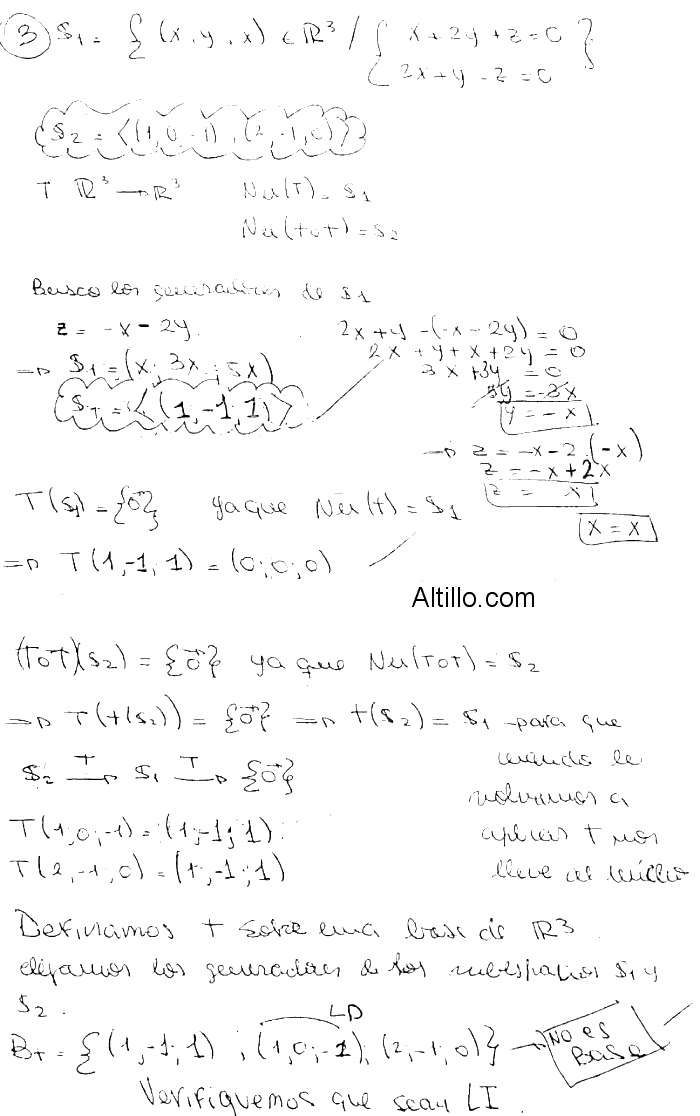 3 S₁ = { (x, y, x) ∈ ℝ³ / { x + 2y + z = 0
2x + y - z = 0 }
S₂ = <(1, 0, -1), (2, -1, 0)>
T ℝ³ → ℝ³ Nu(T) = S₁
Nu(ToT) = S₂
Busco los generadores de S₁
z = -x - 2y.
2x + y - (-x - 2y) = 0
2x + y + x + 2y = 0
⇒ S₁ = (x; 3x; 5x)
3x + 3y = 0
S₁ = <(1, -1, 1)>
3y = -3x
y = -x
→ z = -x - 2.(-x)
z = -x + 2x
z = x
x = x
T(S₁) = {0⃗} ya que Nu(T) = S₁
⇒ T(1, -1, 1) = (0; 0; 0)
Altillo.com
(ToT)(S₂) = {0⃗} ya que Nu(ToT) = S₂
⇒ T(T(S₂)) = {0⃗} ⇒ T(S₂) = S₁ para que
cuando le
volvamos a
aplicar T nos
lleve al núcleo
S₂ →T S₁ →T {0⃗}
T(1, 0, -1) = (1; -1; 1)
T(2, -1, 0) = (1, -1; 1)
Definamos T sobre una base de ℝ³
elijamos los generadores de los subespacios S₁ y
S₂.
LD
B_T = {(1, -1; 1), (1, 0; -1); (2, -1, 0)} → No es
Base
Verifiquemos que sean LI.